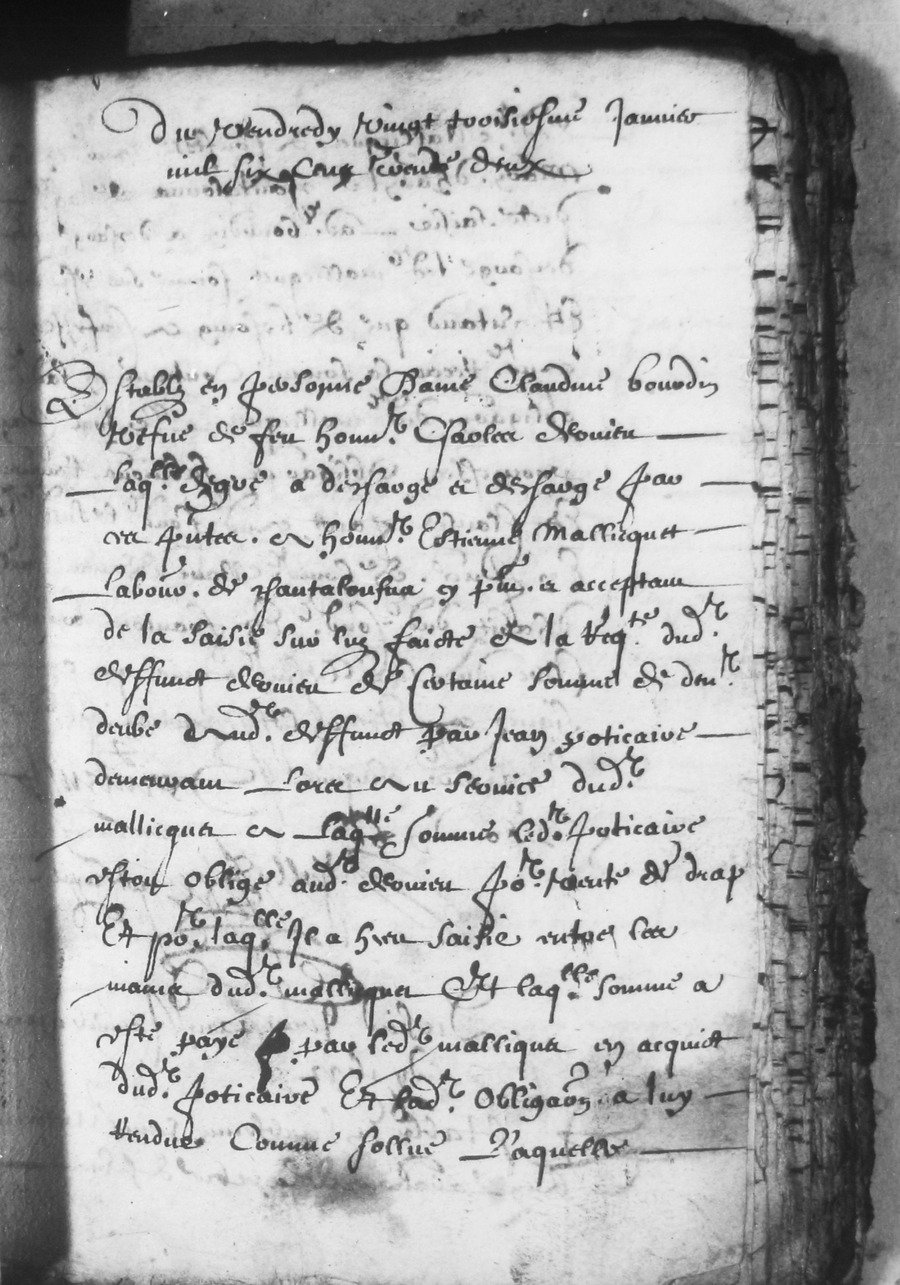 Du vendredy vingt troisiesme Janvier
mil six cens trente deux
Establye en personne Dame Claudine bourdin
vefve de feu honnr. Charles
laqlle. de gre a descharge et descharge par
ces pntes. honnr. Estienne Mallicquet
Labour. de pnt. et acceptant
de la saisie sur luy faicte a la Reqte. dudr.
deffunct de certaine somme de denr.
deube audr. deffunct par Jean poticaire
demeurant Lores au service dudr.
mallicquet laqlle somme ledr. Poticaire
estoit oblige audr. por. vente de drap
Et por. laqlle. Il a saisie entre les
mains dudr. mallicquet Et laqlle. somme a
este paye par ledr. malliquet en acquict
dudr. Poticaire Et ladr. Obligaon. a luy
Rendue Comme sollue Laquelle